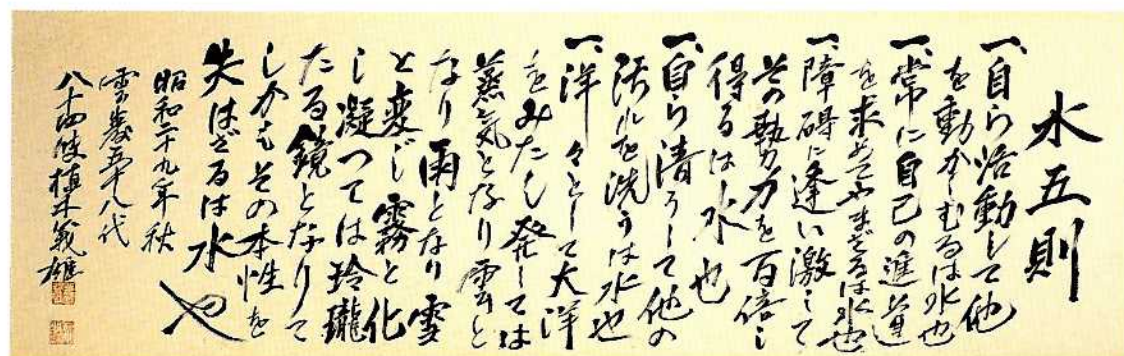 水五則
一、自ら活動して他
を動かしむるは水也
一、常に自己の進路
を求めてやまざるは水也
一、障碍に逢い激して
その勢力を百倍し
得るは水也
一、自ら清うして他の
汚れを洗うは水也
一、洋々として大洋
をみたし発しては
蒸気となり雲と
なり雨となり雪
と変じ霧と化
し凝っては玲瓏
たる鏡となりて
しかもその本性を
失はざるは水也
昭和二十九年秋
五十八代
八十四